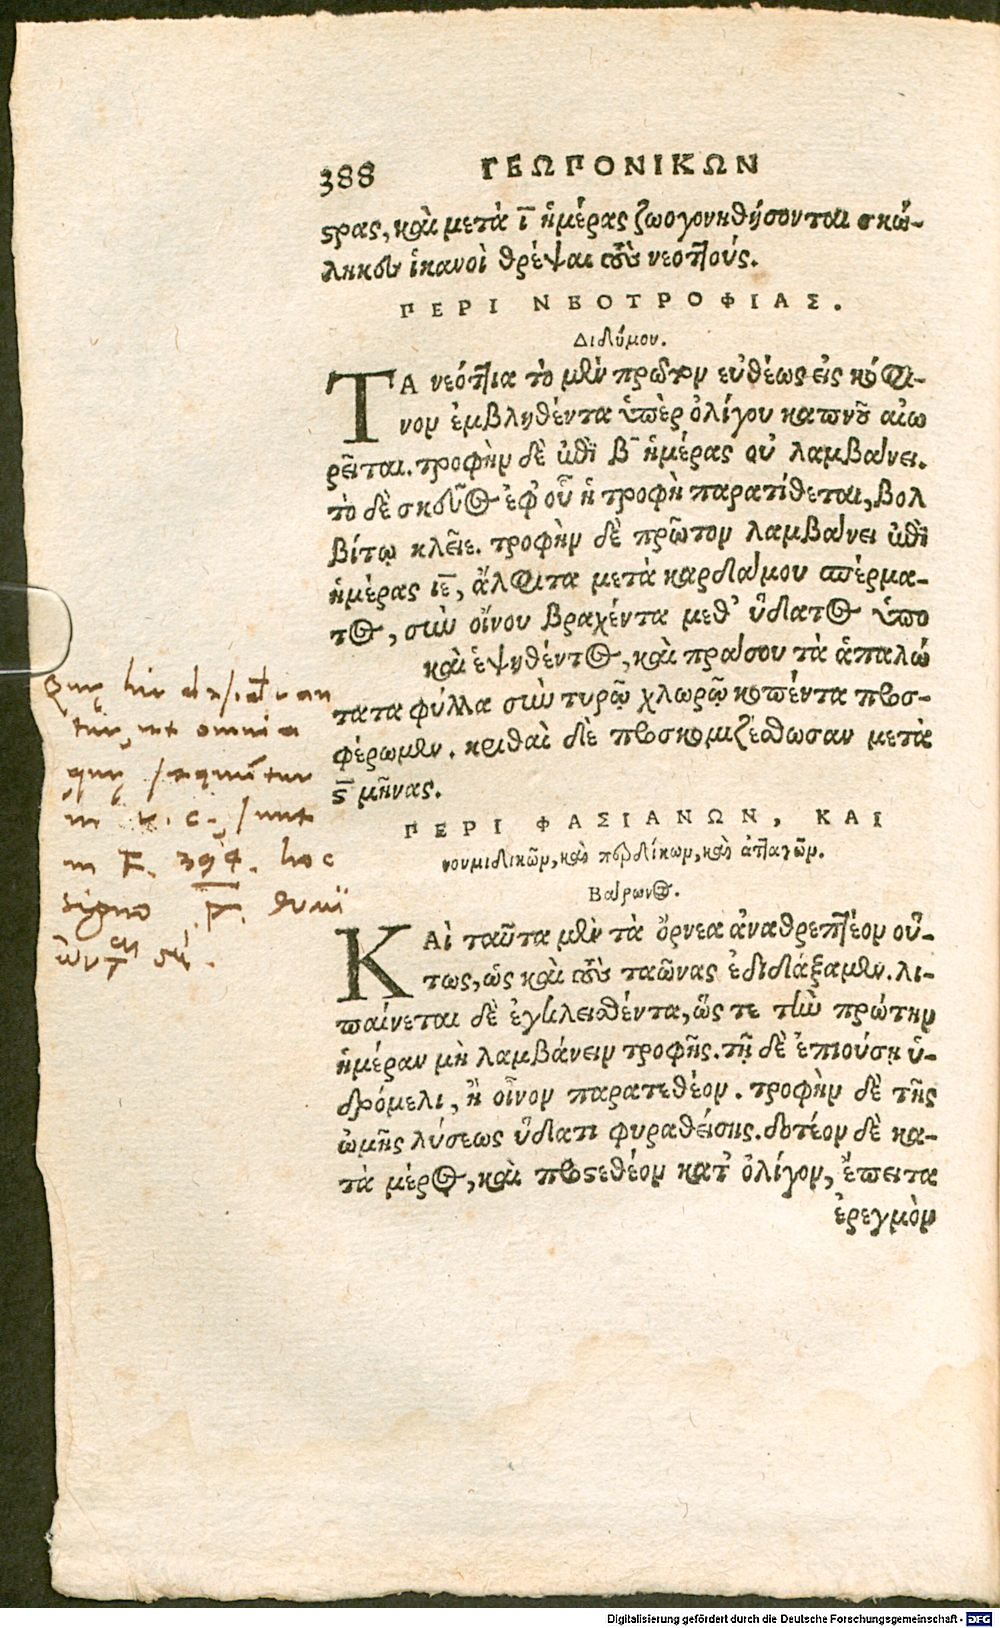 388 ΓΕΩΠΟΝΙΚΩΝ
ϛρας, καὶ μετὰ ῑ ἡμέρας ζωογονηθήσονται σκώ-
ληκες ἱκανοὶ θρέψαι τοὺς νεοττούς.
ΠΕΡΙ ΝΕΟΤΡΟΦΙΑΣ.
Διδύμου.
ΤΑ νεόττια τὸ μὲν πρῶτον εὐθέως εἰς κόφι-
νον ἐμβληθέντα ὑπὲρ ὀλίγου καπνοῦ αἰω
ρεῖται. τροφὴν δὲ ἐπὶ β̄ ἡμέρας οὐ λαμβάνει.
τὸ δὲ σκεῦος ἐφ' οὗ ἡ τροφὴ παρατίθεται, βολ
βίτῳ κλεῖε. τροφὴν δὲ πρῶτον λαμβάνει ἐπὶ
ἡμέρας ιε̄, ἄλφιτα μετὰ καρδάμου σπέρμα-
τος, σὺν οἴνου βραχέντα μεθ' ὕδατος ὑπο
καὶ ἑψηθέντος, καὶ πράσου τὰ ἁπαλώ
τατα φύλλα σὺν τυρῷ χλωρῷ κοπέντα προσ-
φέρωμεν. κριθαὶ δὲ προσκομιζέσθωσαν μετὰ
ϛ̄ μῆνας.
ΠΕΡΙ ΦΑΣΙΑΝΩΝ, ΚΑΙ
νουμιδικῶν, καὶ περδίκων, καὶ ἀτταγῶν.
Βάρωνος.
ΚΑὶ ταῦτα μὲν τὰ ὄρνεα ἀναθρεπτέον οὕ-
τως, ὡς καὶ τοὺς ταῶνας ἐδιδάξαμεν. λι-
παίνεται δὲ ἐγκλεισθέντα, ὥς τε τὴν πρώτην
ἡμέραν μὴ λαμβάνειν τροφῆς. τῇ δὲ ἐπιούσῃ ὑ-
δρόμελι, ἢ οἶνον παρατεθέον. τροφὴν δὲ τῆς
ὠμῆς λύσεως ὕδατι φυραθείσης. δοτέον δὲ κα-
τὰ μέρος, καὶ προσεθέον κατ' ὀλίγον, ἔπειτα
ἐρεγμὸν
Quę hic desideran
tur, ut omnia
quę sequūtur
in c. sunt
in F. 394. hoc
signo
Digitalisierung gefördert durch die Deutsche Forschungsgemeinschaft - DFG